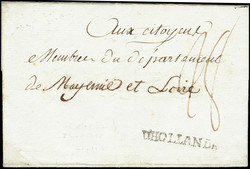 aux citoyens
Membres du département
de Mayenne et Loire
28
D'HOLLANDE